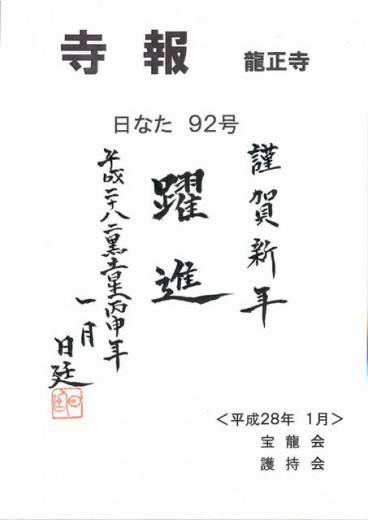 寺報 龍正寺
日なた 92号
謹賀新年
躍進
平成二十八二黒土星丙申年
一月
日廷
＜平成28年 1月＞
宝龍会
護持会